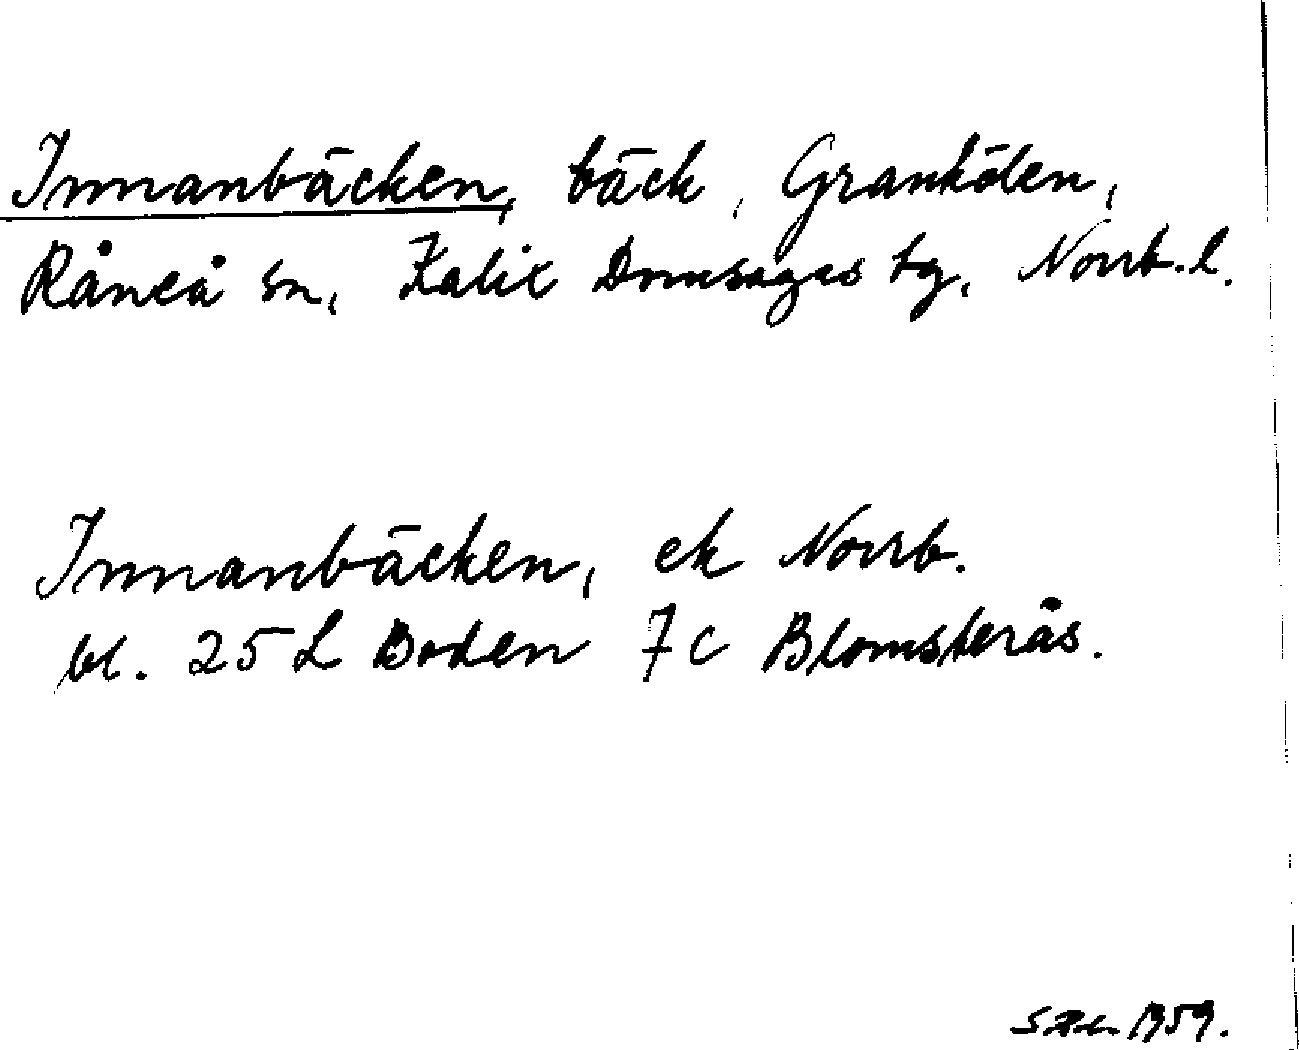 Innanbäcken, bäck, Granhölen,
Råneå sn, Kalix Domsagas tg, Norrb. l.
Innanbäcken, ek Norrb.
bl. 25 L Boden 7c Blomsterås.
1959.